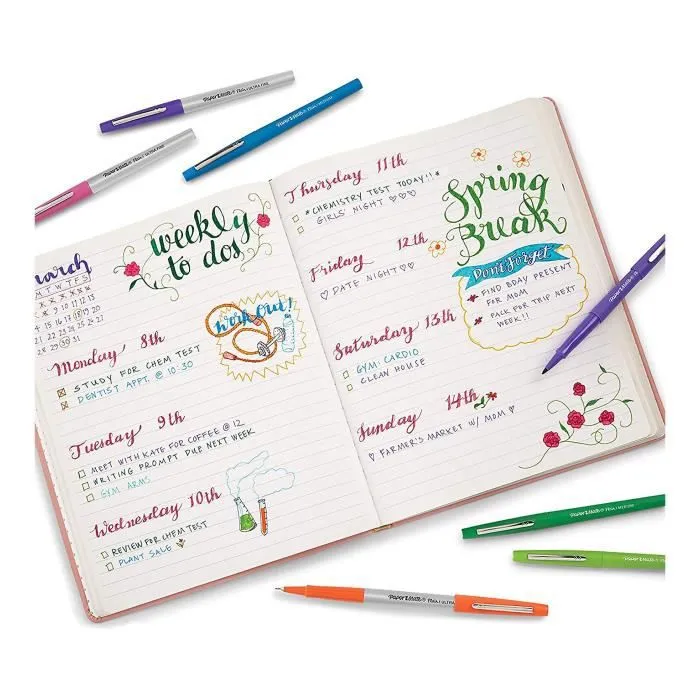 PaperMate® FLAIR ULTRA FINE
PaperMate® FLAIR MEDIUM
PaperMate® FLAIR ULTRA FINE
march
M T W T F S
28 29 30 31
weekly
to dos
work out!
Monday 8th
STUDY FOR CHEM TEST
DENTIST APPT. @ 10:30
Tuesday 9th
MEET WITH KATE FOR COFFEE @ 12
WRITING PROMPT DUE NEXT WEEK
GYM: ARMS
Wednesday 10th
REVIEW FOR CHEM TEST
PLANT SALE
Thursday 11th
*CHEMISTRY TEST TODAY!!*
GIRLS' NIGHT ♡♡♡
Friday 12th
♡ DATE NIGHT ♡♡
Saturday 13th
GYM: CARDIO
CLEAN HOUSE
Sunday 14th
♡ FARMER'S MARKET W/ MOM ♡
Spring
Break
Don't Forget
FIND BDAY PRESENT
FOR MOM
PACK FOR TRIP NEXT
WEEK!!
PaperMate® FLAIR MEDIUM
PaperMate®
PaperMate® FLAIR ULTRA